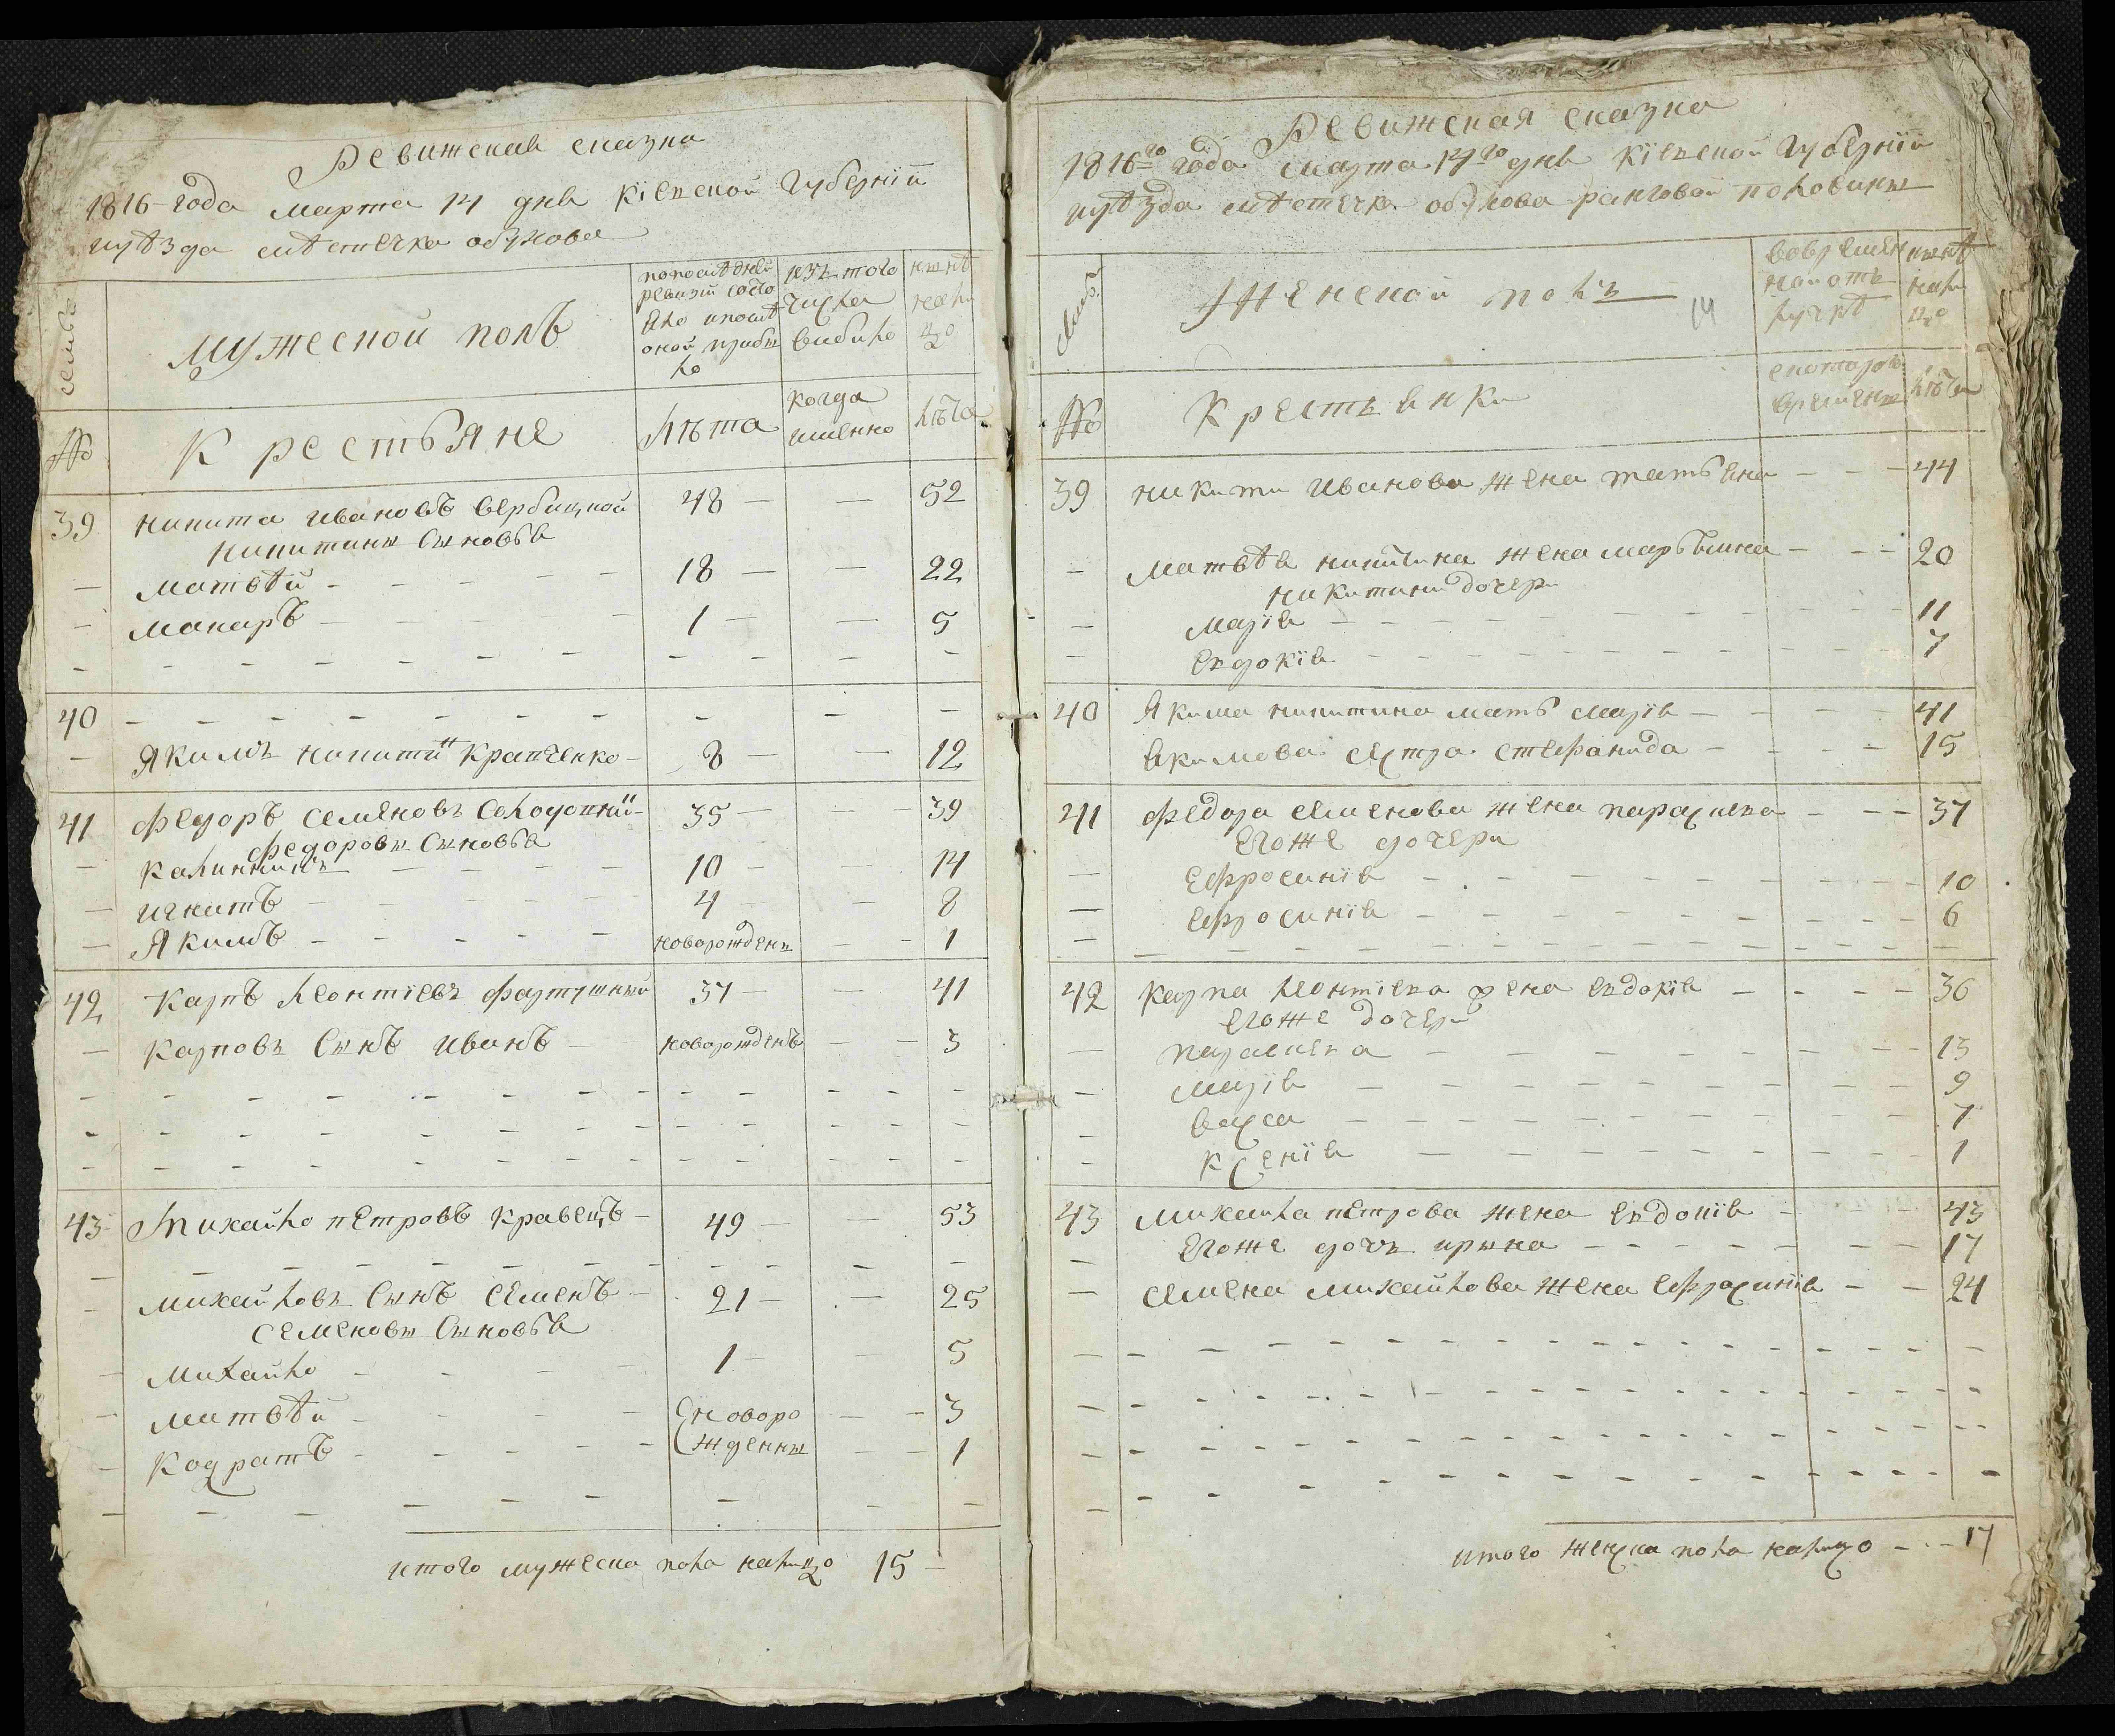 Ревижская сказка
1816 года марта 14 дня Кіевской Губерніи
и уѣзда мѣстечка обухова
семья
мужеской полъ
по последней
ревизіи состо
яло и послѣ
оной прибы
ло
изъ того
числа
выбило
нынѣ
на ли
цо
№
Крестьяне
лѣта
когда
именно
лѣта
39 никита ивановъ вербицкой 48 — — 52
никитины сыновья
— матвѣй — 18 — — 22
— макаръ — 1 — — 5
40
— Якимъ никитинъ кратченко — 8 — — 12
41 федоръ семеновъ 35 — — 39
федоровы сыновья
— калинникъ — 10 — — 14
— игнатъ — 4 — — 8
— Якимъ — новорожденъ — 1
42 карпъ леонтіевъ фартушный 37 — — 41
— карповъ сынъ иванъ — новорожденъ — 3
43 Михайло петровъ кравецъ — 49 — — 53
— михайловъ сынъ семенъ — 21 — — 25
семеновы сыновья
— михайло — 1 — — 5
— матвѣй — новоро — 3
— кодратъ — жденны — 1
итого мужеска пола налицо 15 —
Ревижская сказка
1816го года марта 14го дня Кіевской Губерніи
и уѣзда мѣстечка обухова ранговой половины
семья
Женской полъ
14
во времян
ной отъ
лучкѣ
нынѣ
нали
цо
№
Крестьянки
с котораго
времени
лѣта
39 никити иванова жена татьяна — — — 44
— матвѣя никитина жена марьяна — — — 20
никитини дочери
— марія — 11
— евдокія — 7
40 Якима никитина мать марія — 41
якимова сестра стефанида — 15
41 федора семенова жена параскева — — — 37
егоже дочери
— ефросинія — 10
— ефросинія — 6
42 карпа леонтіева жена евдокія — 36
егоже дочери
— параскева — 13
— марія — 9
— васса — 7
— ксенія — 1
43 михайла петрова жена евдокія — 43
— егоже дочь ирына — 17
— семена михайлова жена ефросинія — — 24
итого женска пола налицо — 17